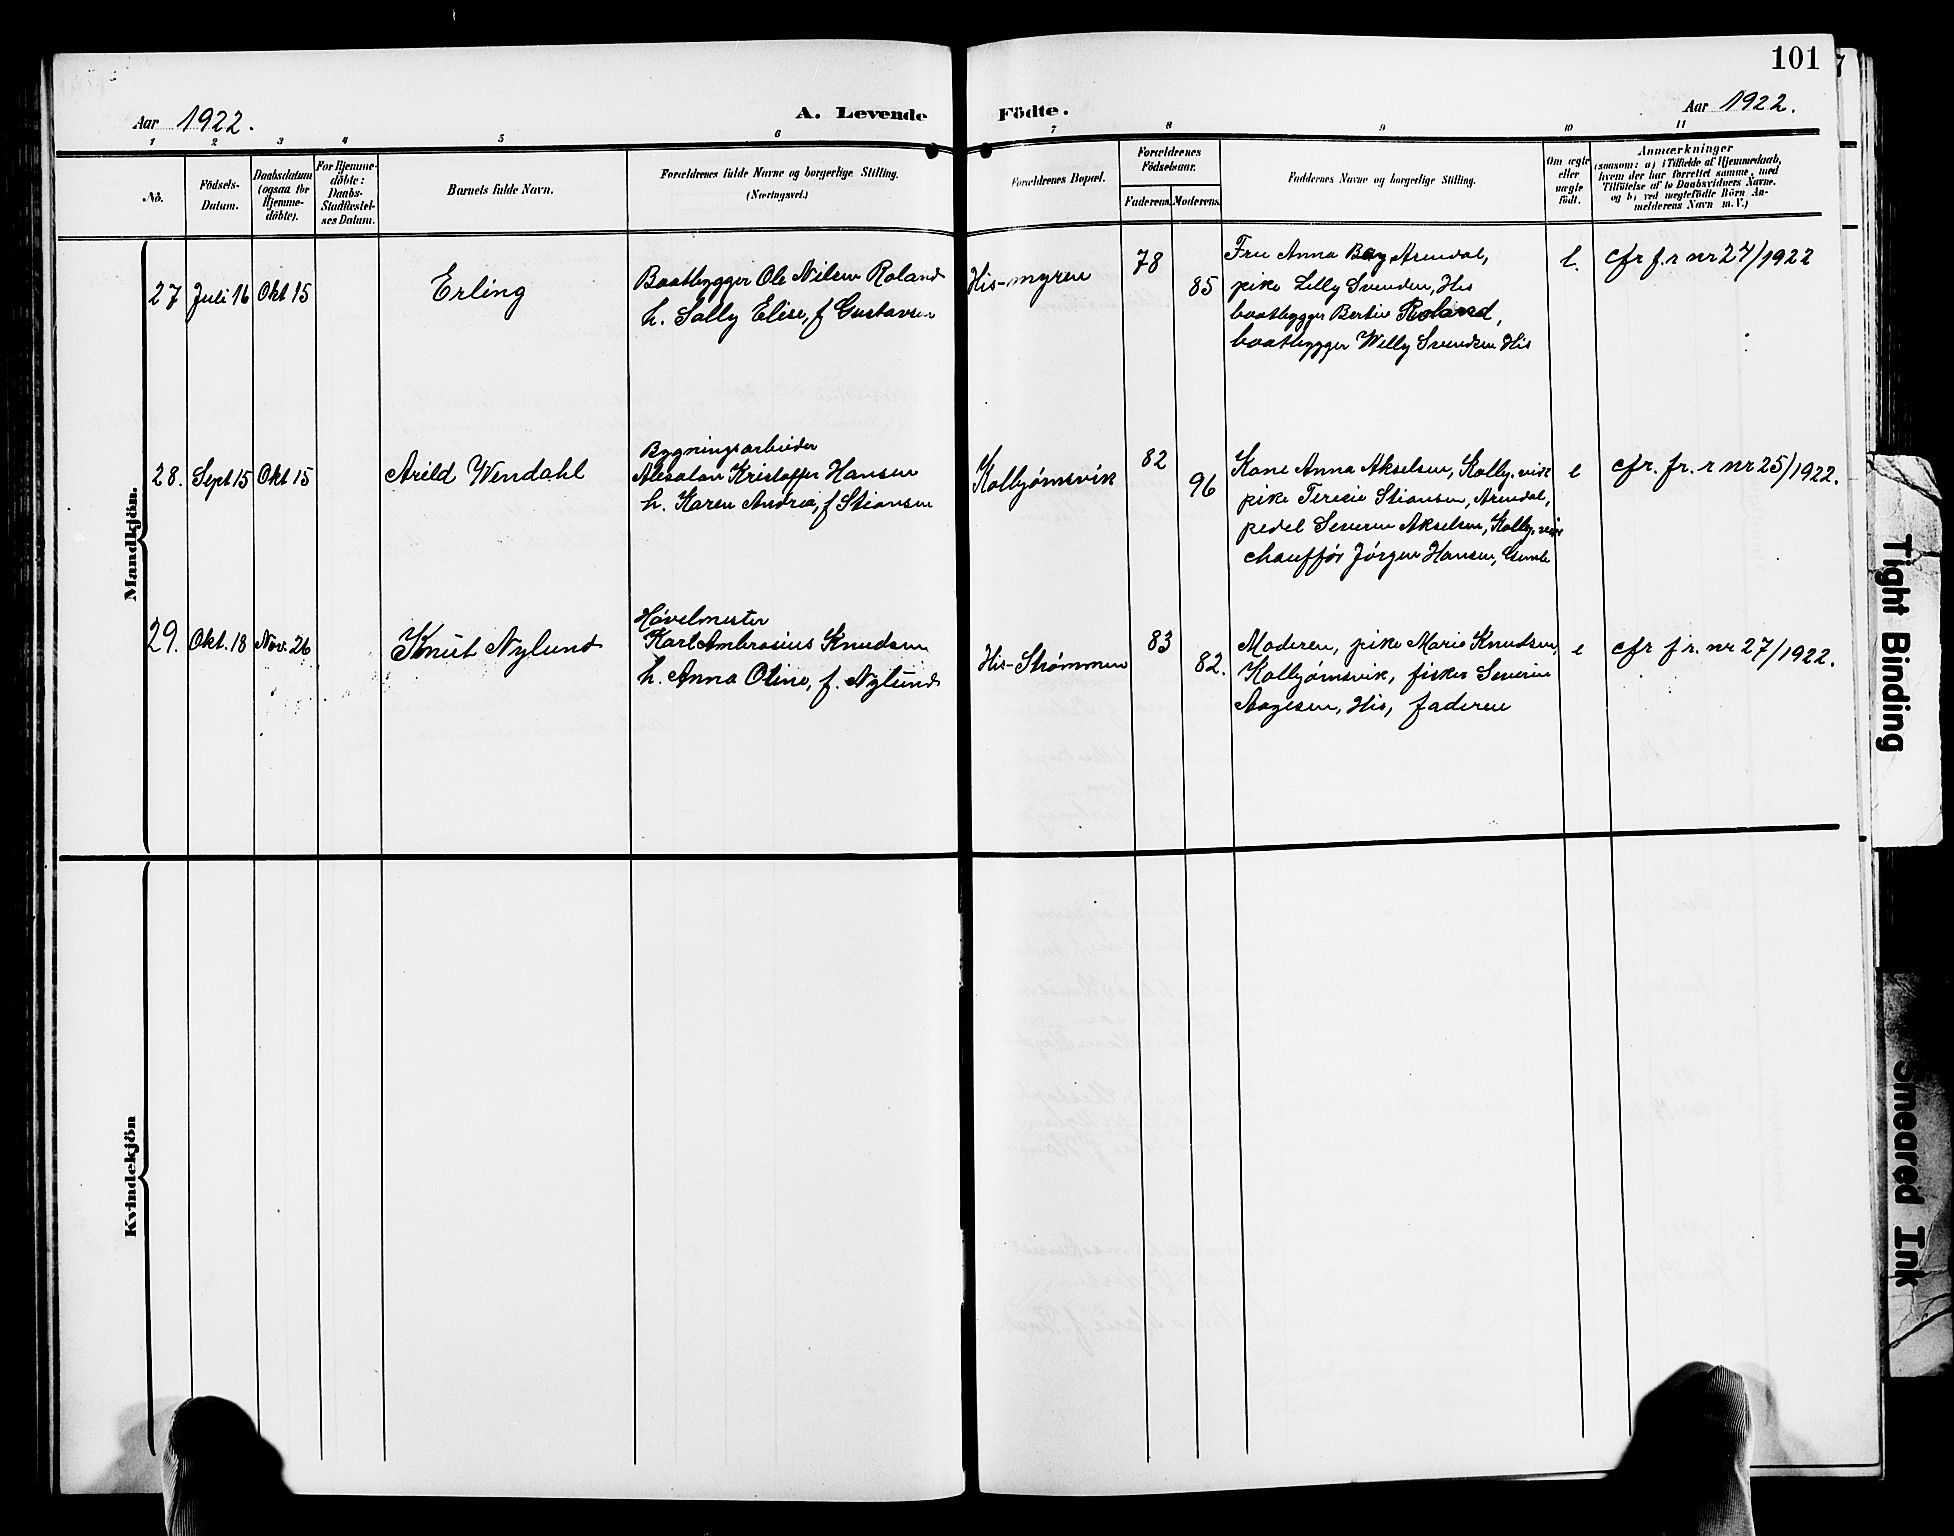 101
Aar 1922.
A. Levende Födte.
Aar 1922.
1 2 3 4 5 6 7 8 9 10 11
No.
Födsels-
Datum.
Daabsdatum
(ogsaa for
Hjemme-
döbte).
For Hjemme-
döbte:
Daabs-
Stadfæstel-
ses Datum.
Barnets fulde Navn.
Forældrenes fulde Navne og borgerlige Stilling.
(Næringsvei.)
Forældrenes Bopæl.
Forældrenes
Födselsaar.
Faderens.
Moderens.
Faddernes Navne og borgerlige Stilling.
Om ægte
eller
uægte
födt.
Anmærkninger
(saasom: a) i Tilfælde af Hjemmedaab,
hvem der har forrettet samme, med
Tilföielse af to Daabsvidners Navne.
og b) ved uægtefödte Börn An-
melderens Navn m. V.)
Mandkjön.
27 Juli 16 Okt 15
Erling
Baatbygger Ole Nilsen Roland
h. Sally Elise, f Gustavsen
His-myren
78
85
Fru Anna Bøy Arendal,
pike Lilly Svendsen, His
baatbygger Bertin Roland,
baatbygger Willy Svendsen His
l.
cfr f.r nr 24/1922
28. Sept 15 Okt 15
Arild Wendahl
Bygningsarbeider
Absalon Kristoffer Hansen
h. Karen Andrea, f Stiansen
Kolbjørnsvik
82
96
Kone Anna Akselsen, Kolbj.vik
pike Terecie Stiansen, Arendal,
pedel Severin Akselsen, Kolbj.vik
chauffør Jörgen Hansen,
e
cfr. fr. r nr 25/1922.
29. Okt. 18 Nov. 26
Knut Nylund
Høvelmester
Karl Ambrosius Knudsen
h. Anna Oline, f. Nylund
His-Strømmen
83
82.
Moderen, pike Marie Knudsen,
Kolbjørnsvik, fisker Severin
Aagesen, His, faderen
e
cfr f r. nr 27/1922.
Kvindekjön
Tight Binding
Smeared Ink